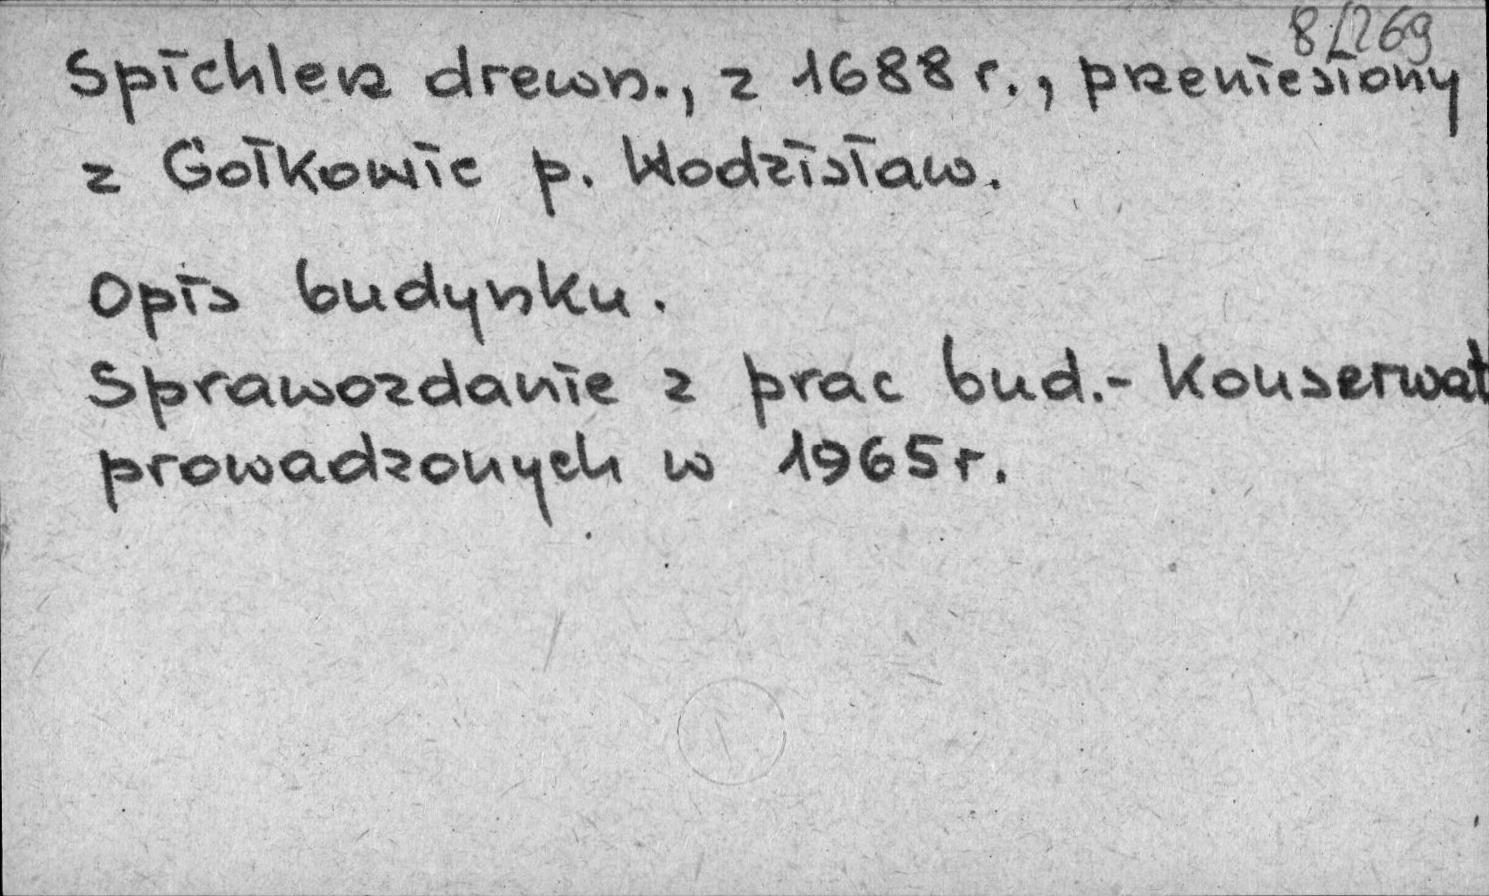 8/269
Spichlerz drewn., z 1688 r., przeniesiony
z Gołkowic p. Wodzisław.
Opis budynku.
Sprawozdanie z prac bud.- konserwat
prowadzonych w 1965 r.